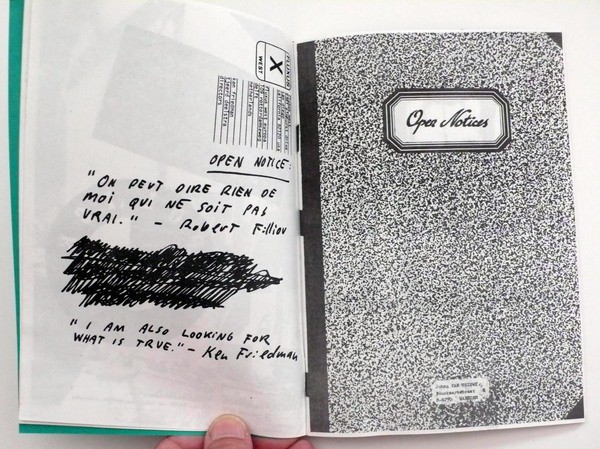 WEST
X
OPEN NOTICE:
"ON PEUT DIRE RIEN DE
MOI QUI NE SOIT PAS
VRAI." - Robert Filliou
"I AM ALSO LOOKING FOR
WHAT IS TRUE." - Ken Friedman
Open Notices